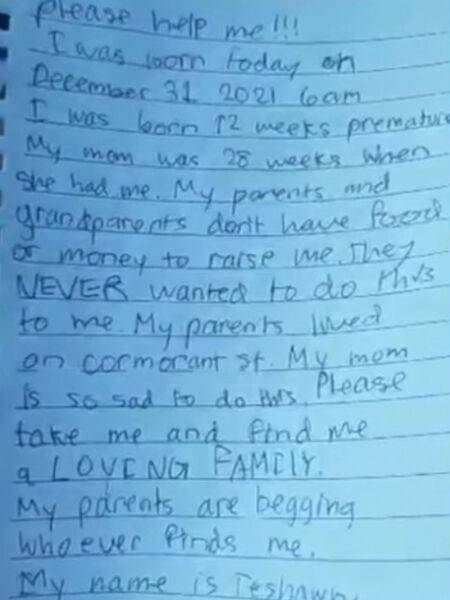 Please help me!!!
I was born today on
December 31 2021 6am
I was born 12 weeks premature
My mom was 28 weeks when
she had me. My parents and
grandparents don't have food
or money to raise me. They
NEVER wanted to do this
to me. My parents lived
on cormorant st. My mom
is so sad to do this. Please
take me and find me
a LOVING FAMILY.
My parents are begging
whoever finds me.
My name is Teshawn.